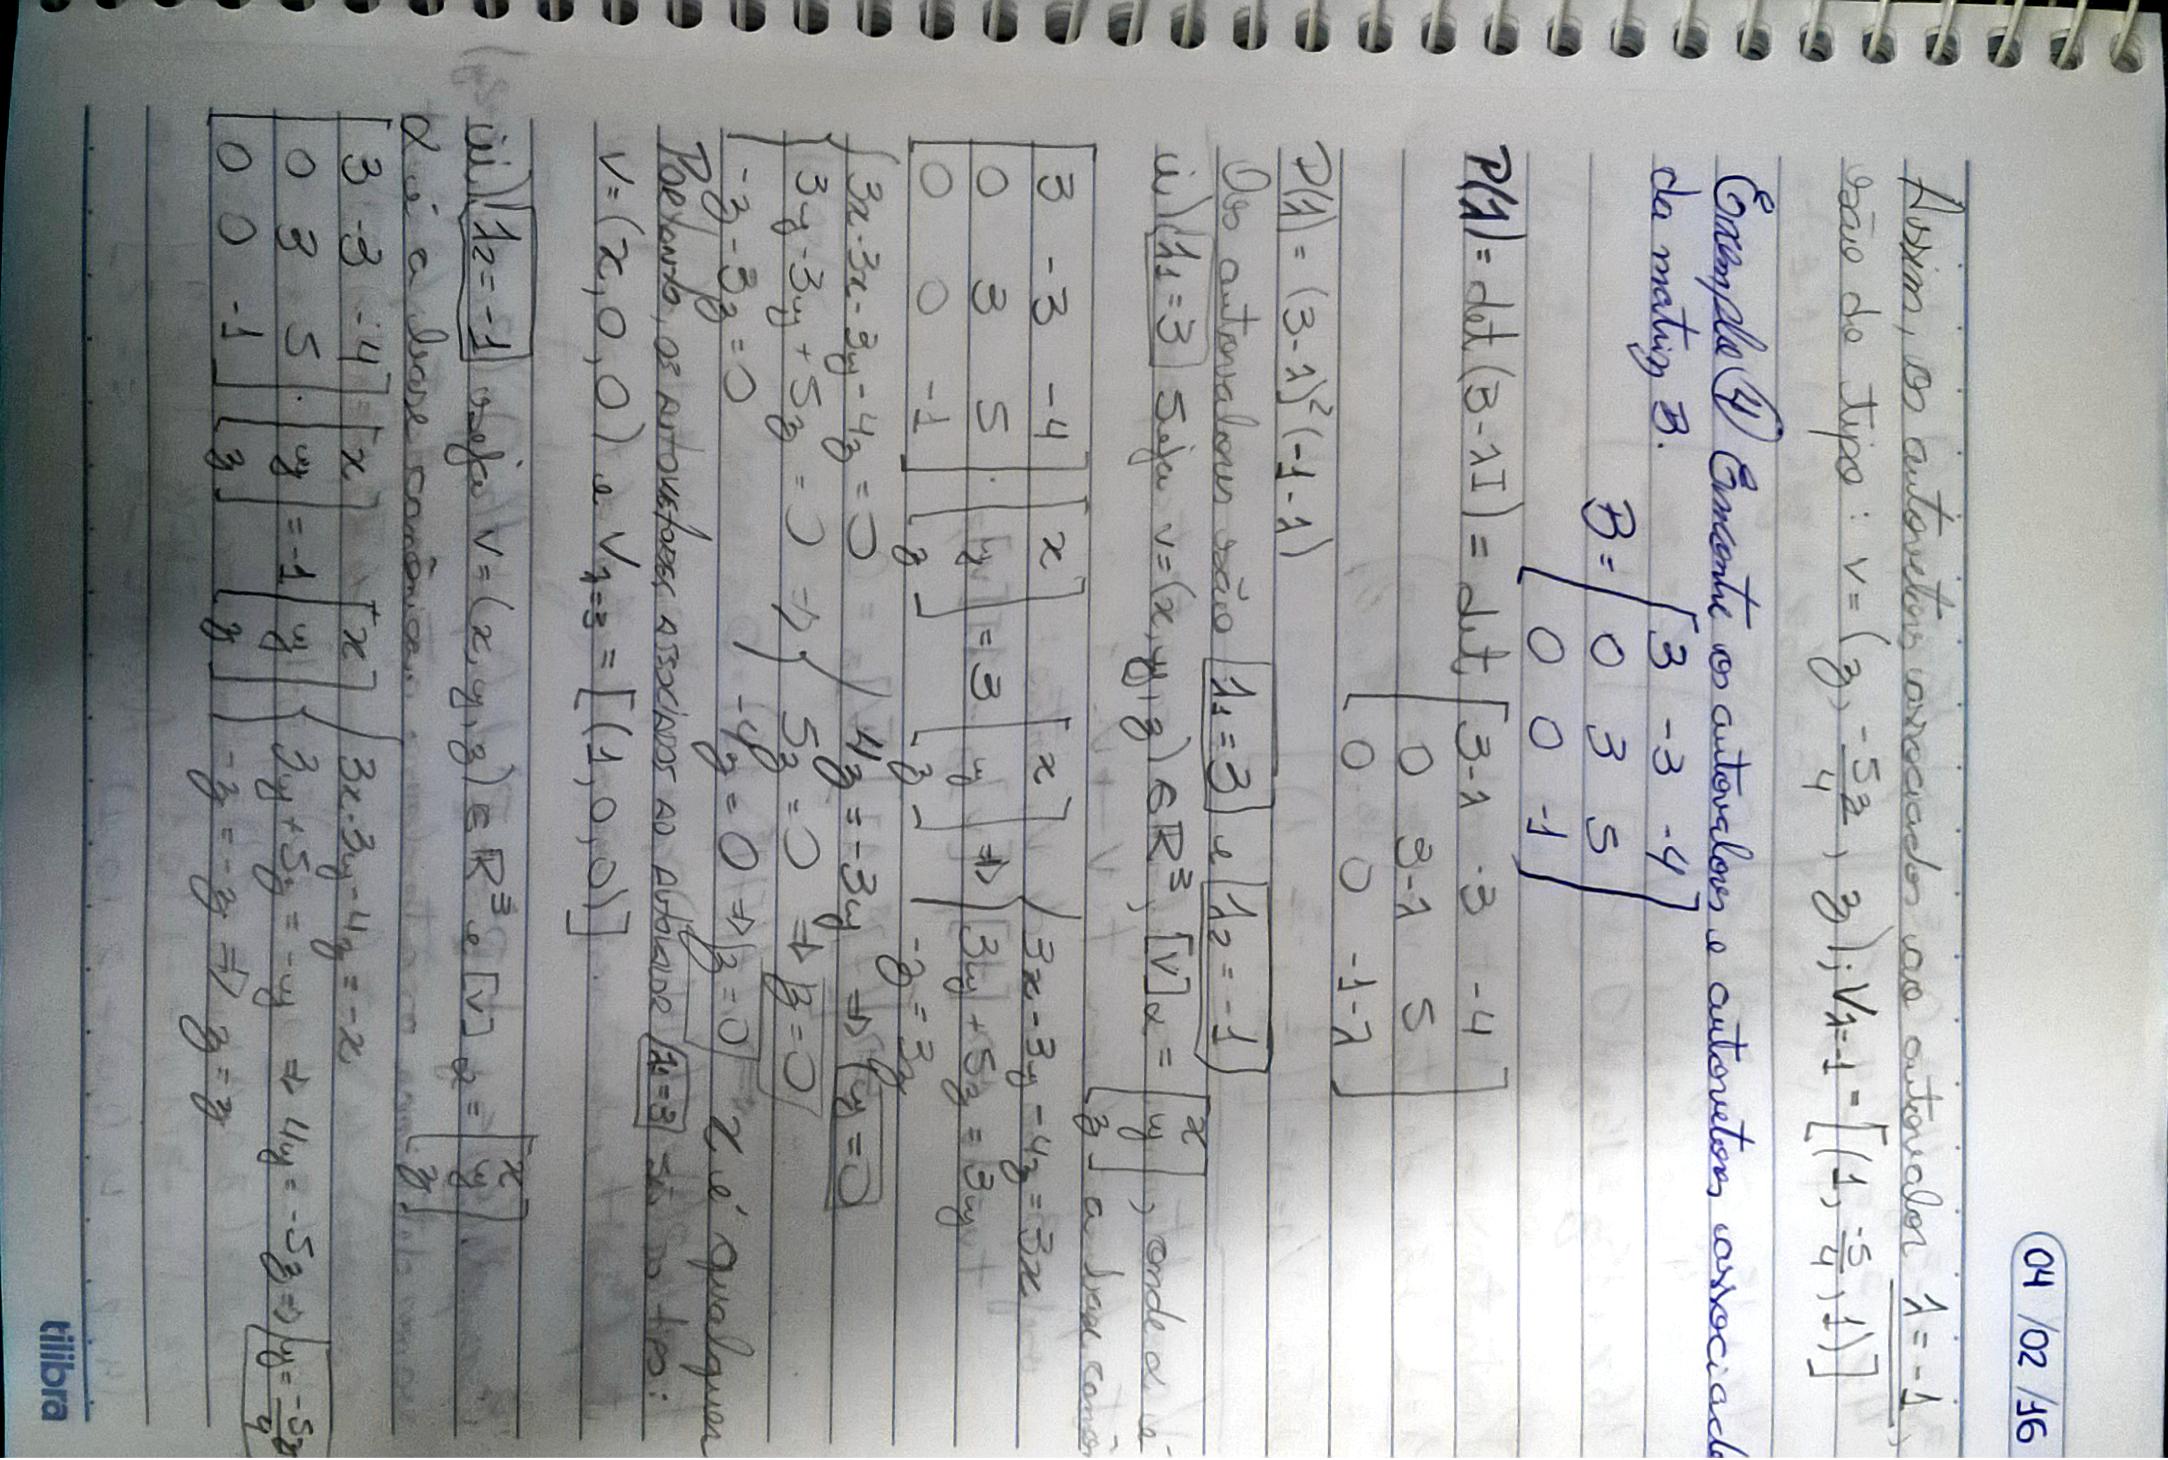 04 /02 /16
Assim, os autovetores associados ao autovalor λ = -1,
são do tipo: v = (z, -5z/4, z); Vλ=-1 = [(1, -5/4, 1)]
Exemplo 4 Encontre os autovalores e autovetores associado
da matriz B.
B = [3 -3 -4
0 3 5
0 0 -1]
P(λ) = det(B - λI) = det [3-λ -3 -4
0 3-λ 5
0 0 -1-λ]
P(λ) = (3-λ)² (-1-λ)
Os autovalores são λ1 = 3 e λ2 = -1
ii) λ1 = 3 Seja v = (x, y, z) ∈ R³, [v]α = [x y z], onde α é
a base canôn
[3 -3 -4
0 3 5
0 0 -1] · [x y z] = 3 [x y z] ⇒ { 3x - 3y - 4z = 3x
3y + 5z = 3y
-z = 3z
{ 3x - 3x - 3y - 4z = 0 { 4z = -3y ⇒ y = 0
3y - 3y + 5z = 0 ⇒ 5z = 0 ⇒ z = 0
-z - 3z = 0 -4z = 0 ⇒ z = 0 x é qualquer
Portanto, os autovetores associados ao autovalor λ1 = 3 são do tipo:
v = (x, 0, 0) e Vλ=3 = [(1, 0, 0)]
iii) λ2 = -1 seja v = (x, y, z) ∈ R³ e [v]α = [x y z].
α é a base canônica.
[3 -3 -4
0 3 5
0 0 -1] · [x y z] = -1 [x y z] { 3x - 3y - 4z = -x
3y + 5z = -y ⇒ 4y = -5z ⇒ y = -5z/4
-z = -z ⇒ z = z
tilibra